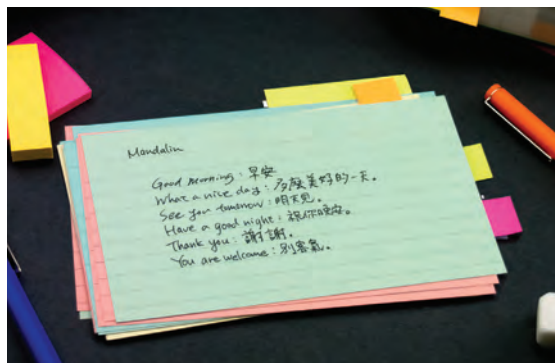 Mandalin
Good morning : 早安
What a nice day : 多麼美好的一天。
See you tomorrow : 明天見。
Have a good night : 祝你晚安。
Thank you : 謝謝。
You are welcome : 別客氣。